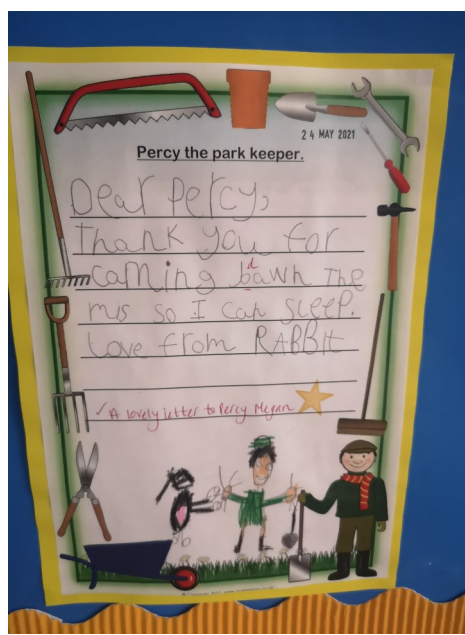 24 MAY 2021
Percy the park keeper.
Dear Percy,
Thank you for
caming bawn The
d
mis so I can sleep.
Love from RABBIt
✓ A lovely letter to Percy Megan